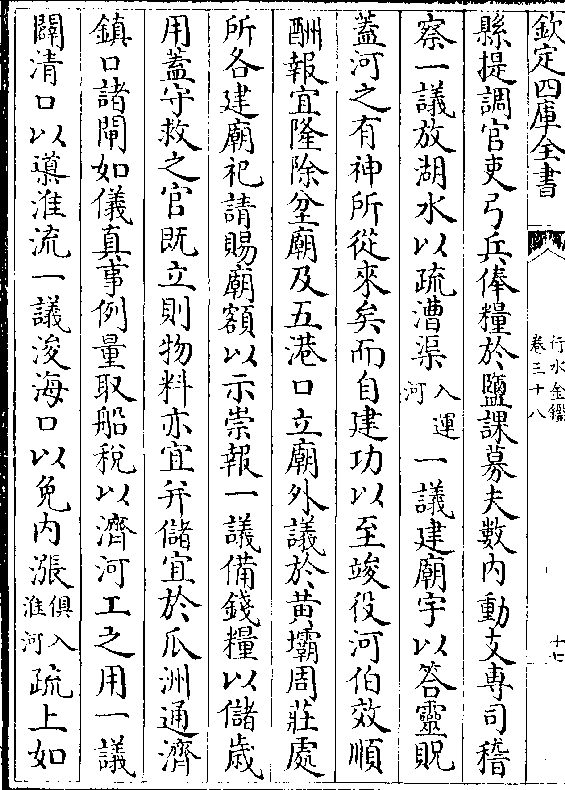 欽定四庫全書
行水金鑑
卷三十八
十七
縣提調官吏弓兵俸糧於鹽課募夫數內動支專司稽
察一議放湖水以疏漕渠入運河一議建廟宇以答靈貺
蓋河之有神所從來矣而自建功以至竣役河伯效順
酬報宜隆除垈廟及五港口立廟外議於黃壩周莊處
所各建廟祀請賜廟額以示崇報一議備錢糧以儲歲
用蓋守救之官既立則物料亦宜并儲宜於瓜洲通濟
鎮口諸閘如儀真事例量取船稅以濟河工之用一議
闢清口以導淮流一議浚海口以免內漲俱入淮河疏上如